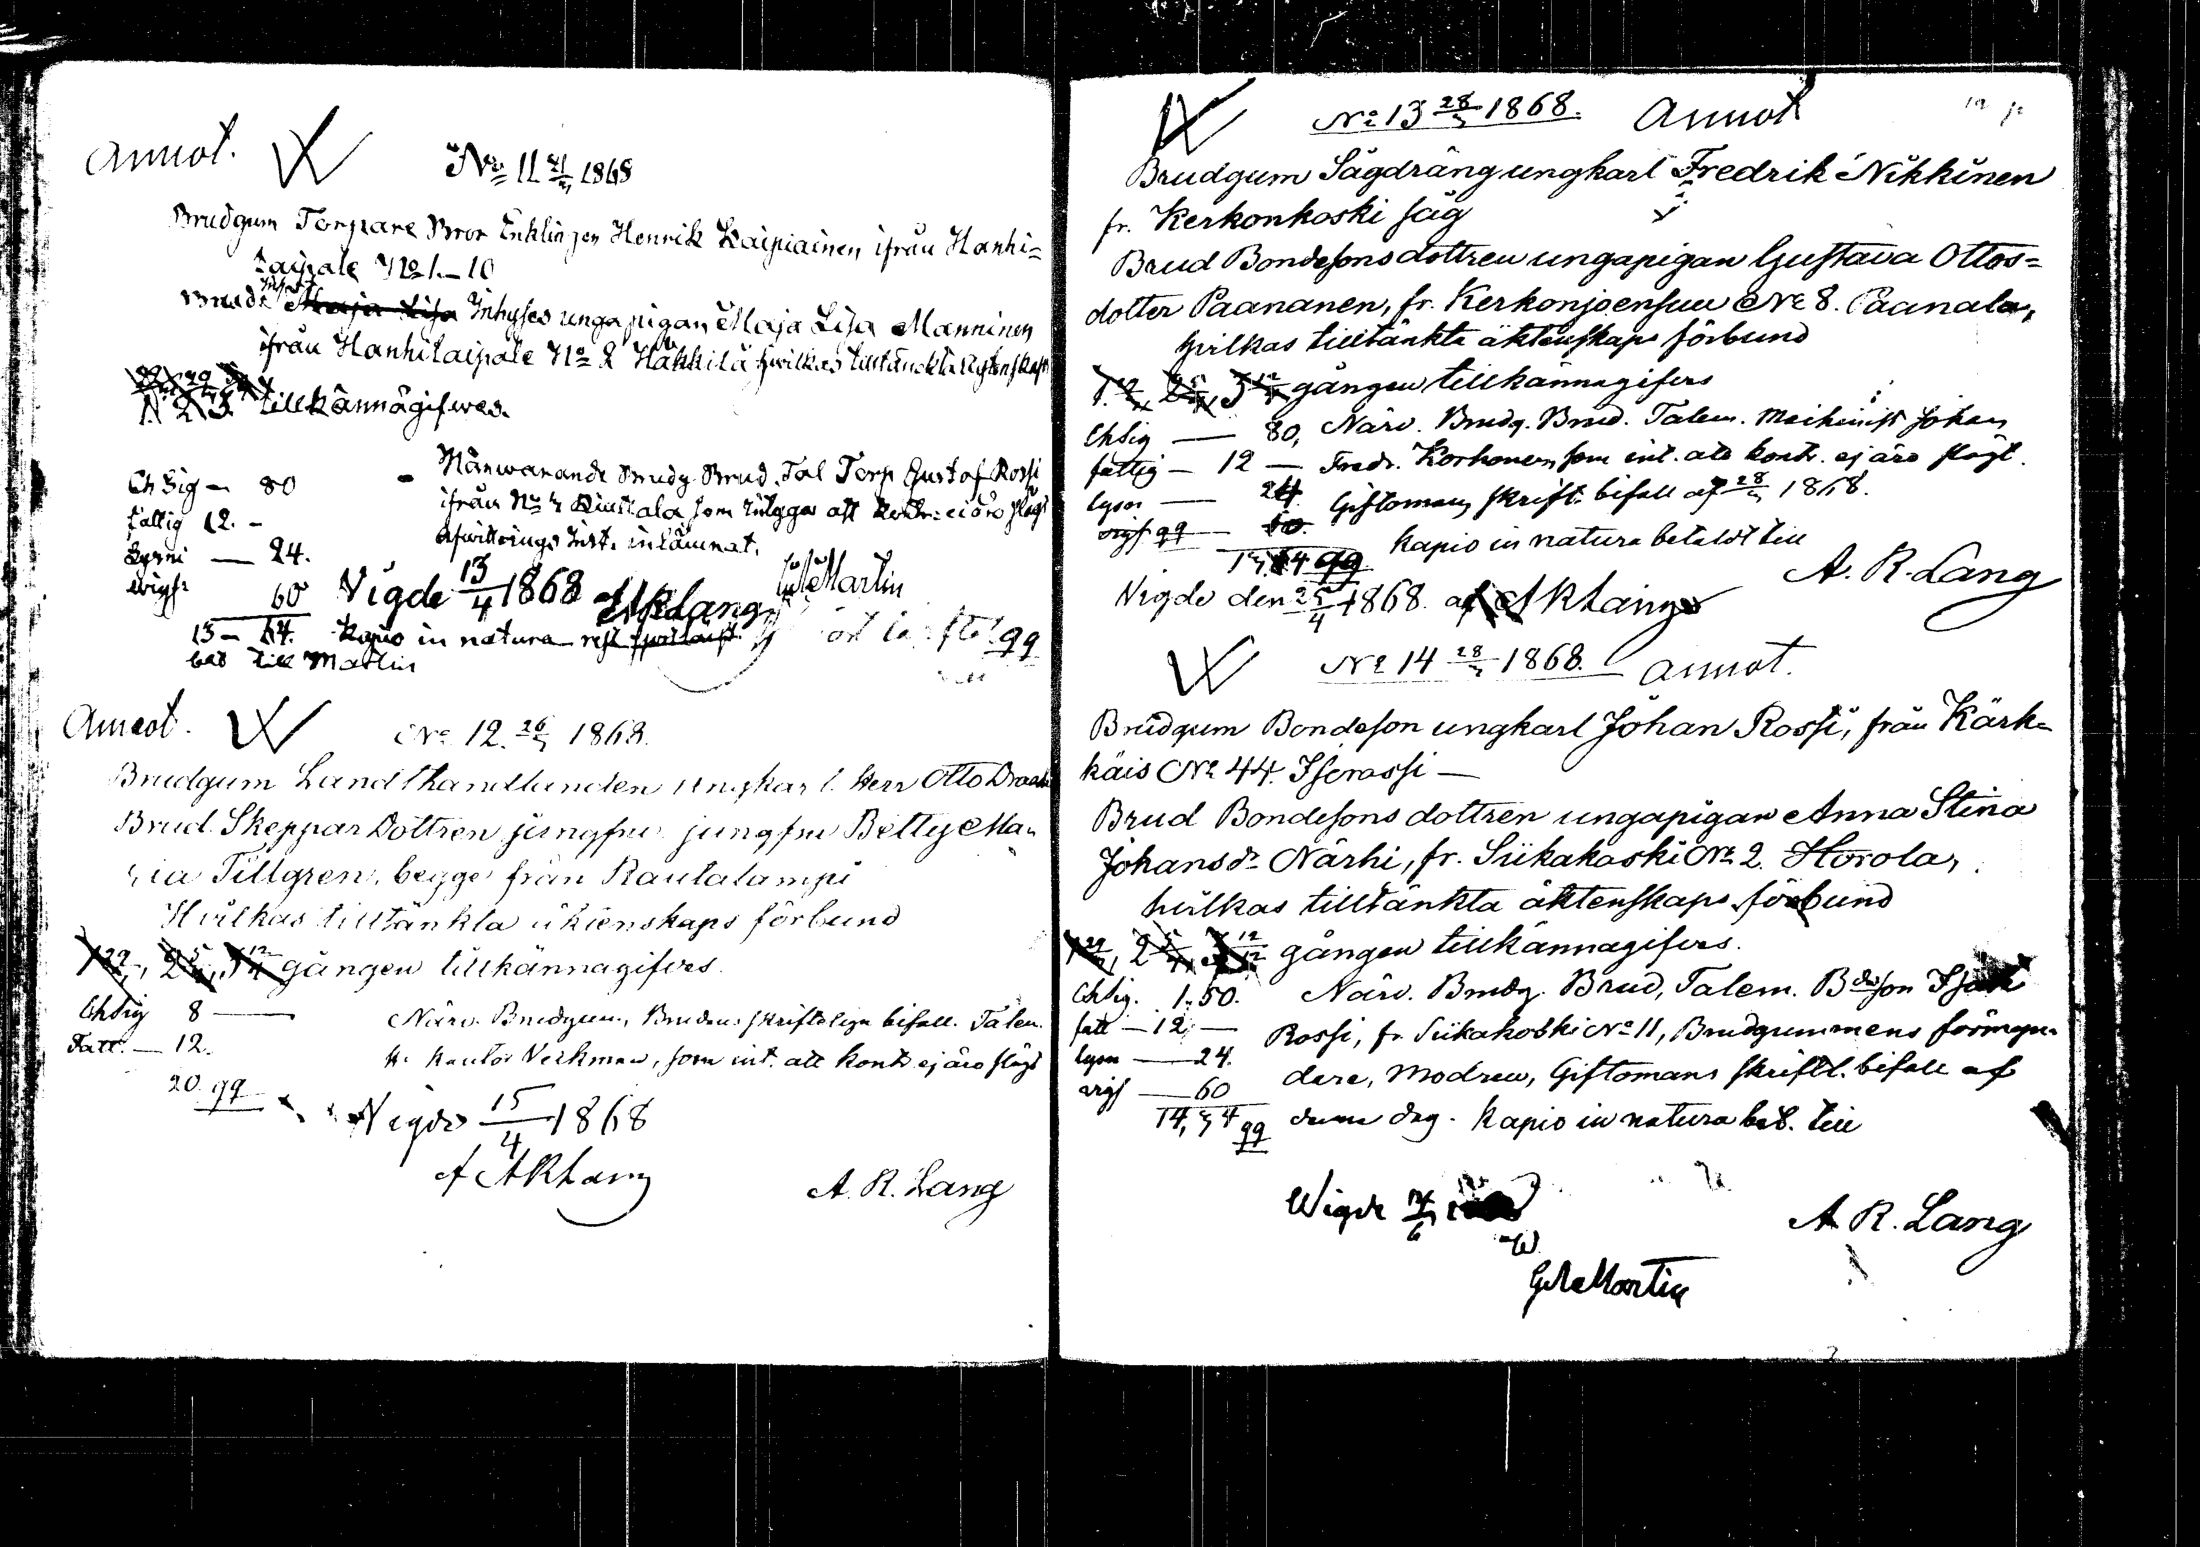 Annot. No 11 21/3 1868
Brudgum Torpare Bror Enklingen Henrik Kaipiainen ifrån Hanhi=
taipale No 1.–10
Brud Maja Lisa Inhyses unga pigan Maja Lisa Manninen
ifrån Hanhitaipale No 2 Häkkilä hwilkas tilltänckta Ägtenskaps
1. 2. 3. tillkännagifwes.
Närwarande Brudg. Brud. Tal Torp Gustaf Rossi
ifrån No 3 som intygga att kontr: ei äro slägt
Afwittrings Inst. inlämnat.
Ch Sig – 80
fattig 12. –
Lysni — 24.
wigs: 60
13 – 64.
Vigde 13/4 1868 af ARLang
Martin
Kapio in natura
bet till Martin
qq
Annot. No 12. 26/3 1868.
Brudgum Landthandlanden ungkarl Herr Otto
Brud. Skeppar Dottren jungfru jungfru Betty Ma=
ria Tillgren, begge från Rautalampi
Hvilkas tilltänkta äktenskaps förbund
1 29/3, 2 5/4, 3 12/4 gången tillkännagifves.
Chsig 8 —
Fatt. — 12.
20 qq
Närv. Brudgum, Brudens skriftelign bifall. Talem.
Hr Kantor Verkman, som int. att kontr ej äro slägt
Vigdes 15/4 1868
af ARLang
A. R. Lang
No 13 28/3 1868. Annot
Brudgum Sågdräng ungkarl Fredrik Nikkinen
fr. Kerkonkoski såg
Brud Bondesonsdottren ungapigan Gustava Ottos=
dotter Paananen, fr. Kerkonjoensuu No 8. Paanala,
hvilkas tilltänkta äktenskaps förbund
1. 29/3, 2 5/4, 3 12/4 gången tillkännagifves
Chsig — 80,
fattig – 12 —
lysn — 24
vigs qq — 60.
qq
Närv. Brudg. Brud. Talem. Machinist Johan
Fredr. Korhonen, som int. att kontr. ej äro slägt.
Giftomans skriftl. bifall af 28/3 1868.
Kapio in natura betaldt till
A. R. Lang
Vigde den 25/4 1868. af ARLang
No 14 28/3 1868. Annot.
Brudgum Bondeson ungkarl Johan Rossi, från Kärk=
käis No 44. Isorassi —
Brud Bondesons dottren ungapigan Anna Stina
Johansdr Närhi, fr. Siikakoski No 2. Horola,
hvilkas tilltänkta äktenskaps förbund
1 29/3, 2 5/4, 3 12/4 gången tillkännagifves.
Chsig. 1. 50.
fatt – 12 —
lysn — 24.
vigs — 60
14, 34 qq
Närv. Brudg. Brud, Talem. Bdeson Isak
Rossi, fr. Siikakoski No 11, Brudgummens förmyn=
dare, Modren, Giftomans skriftl. bifall af
denna dag. Kapio in natura bet. till
A. R. Lang
Wigde
Martin